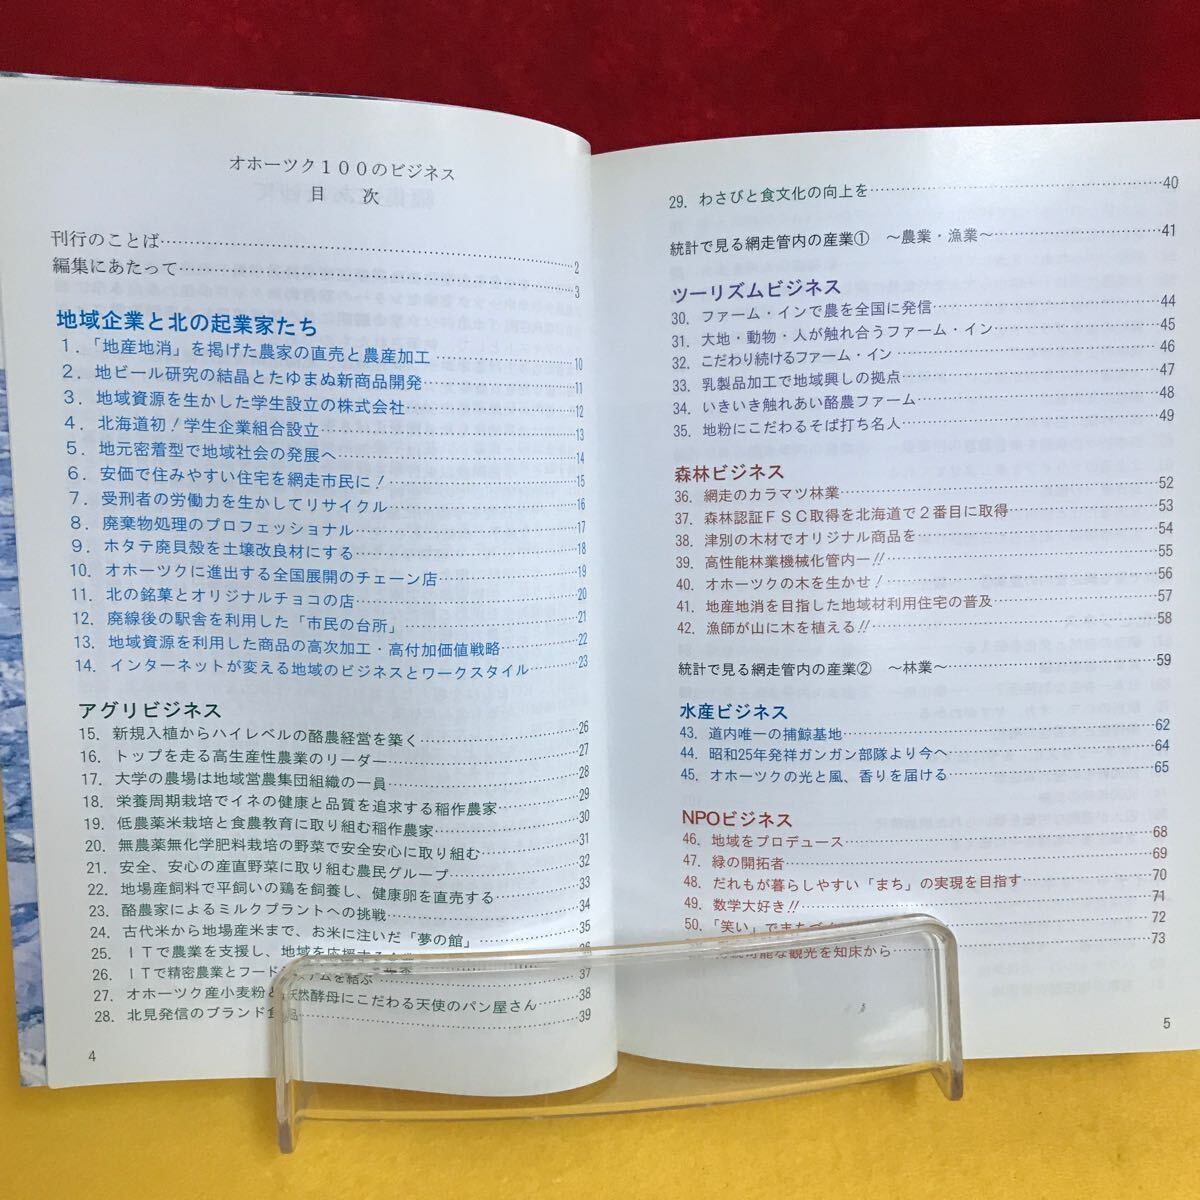 オホーツク１００のビジネス
目　次
刊行のことば……2
編集にあたって……3
地域企業と北の起業家たち
1．「地産地消」を掲げた農家の直売と農産加工……10
2．地ビール研究の結晶とたゆまぬ新商品開発……11
3．地域資源を生かした学生設立の株式会社……12
4．北海道初！学生企業組合設立……13
5．地元密着型で地域社会の発展へ……14
6．安価で住みやすい住宅を網走市民に！……15
7．受刑者の労働力を生かしてリサイクル……16
8．廃棄物処理のプロフェッショナル……17
9．ホタテ廃貝殻を土壌改良材にする……18
10．オホーツクに進出する全国展開のチェーン店……19
11．北の銘菓とオリジナルチョコの店……20
12．廃線後の駅舎を利用した「市民の台所」……21
13．地域資源を利用した商品の高次加工・高付加価値戦略……22
14．インターネットが変える地域のビジネスとワークスタイル……23
アグリビジネス
15．新規入植からハイレベルの酪農経営を築く……26
16．トップを走る高生産性農業のリーダー……27
17．大学の農場は地域営農集団組織の一員……28
18．栄養周期栽培でイネの健康と品質を追求する稲作農家……29
19．低農薬米栽培と食農教育に取り組む稲作農家……30
20．無農薬無化学肥料栽培の野菜で安全安心に取り組む……31
21．安全、安心の産直野菜に取り組む農民グループ……32
22．地場産飼料で平飼いの鶏を飼養し、健康卵を直売する……33
23．酪農家によるミルクプラントへの挑戦……34
24．古代米から地場産米まで、お米に注いだ「夢の館」……35
25．ＩＴで農業を支援し、地域を応援する……36
26．ＩＴで精密農業とフードシステムを結ぶ……37
27．オホーツク産小麦粉と天然酵母にこだわる天使のパン屋さん……38
28．北見発信のブランド食品……39
4
29．わさびと食文化の向上を……40
統計で見る網走管内の産業①　～農業・漁業～……41
ツーリズムビジネス
30．ファーム・インで農を全国に発信……44
31．大地・動物・人が触れ合うファーム・イン……45
32．こだわり続けるファーム・イン……46
33．乳製品加工で地域興しの拠点……47
34．いきいき触れあい酪農ファーム……48
35．地粉にこだわるそば打ち名人……49
森林ビジネス
36．網走のカラマツ林業……52
37．森林認証ＦＳＣ取得を北海道で２番目に取得……53
38．津別の木材でオリジナル商品を……54
39．高性能林業機械化管内一!!……55
40．オホーツクの木を生かせ！……56
41．地産地消を目指した地域材利用住宅の普及……57
42．漁師が山に木を植える!!……58
統計で見る網走管内の産業②　～林業～……59
水産ビジネス
43．道内唯一の捕鯨基地……62
44．昭和25年発祥ガンガン部隊より今へ……64
45．オホーツクの光と風、香りを届ける……65
NPOビジネス
46．地域をプロデュース……68
47．緑の開拓者……69
48．だれもが暮らしやすい「まち」の実現を目指す……70
49．数学大好き!!……71
50．「笑い」でまちづくり……72
可能な観光を知床から……73
5